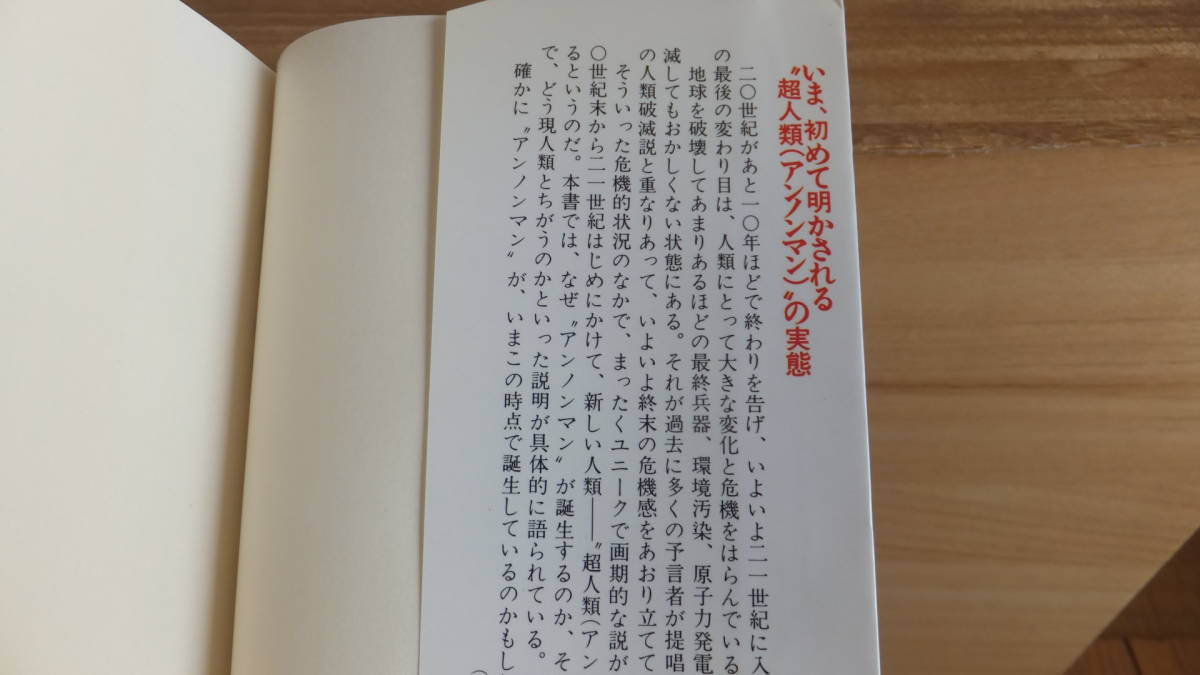 いま、初めて明かされる
〝超人類（アンノンマン）〟の実態
二〇世紀があと一〇年ほどで終わりを告げ、いよいよ二一世紀に入
の最後の変わり目は、人類にとって大きな変化と危機をはらんでいる
地球を破壊してあまりあるほどの最終兵器、環境汚染、原子力発電
滅してもおかしくない状態にある。それが過去に多くの予言者が提唱
の人類破滅説と重なりあって、いよいよ終末の危機感をあおり立てて
そういった危機的状況のなかで、まったくユニークで画期的な説が
〇世紀末から二一世紀はじめにかけて、新しい人類――〝超人類（アン
るというのだ。本書では、なぜ〝アンノンマン〟が誕生するのか、そ
で、どう現人類とちがうのかといった説明が具体的に語られている。
確かに〝アンノンマン〟が、いまこの時点で誕生しているのかもし